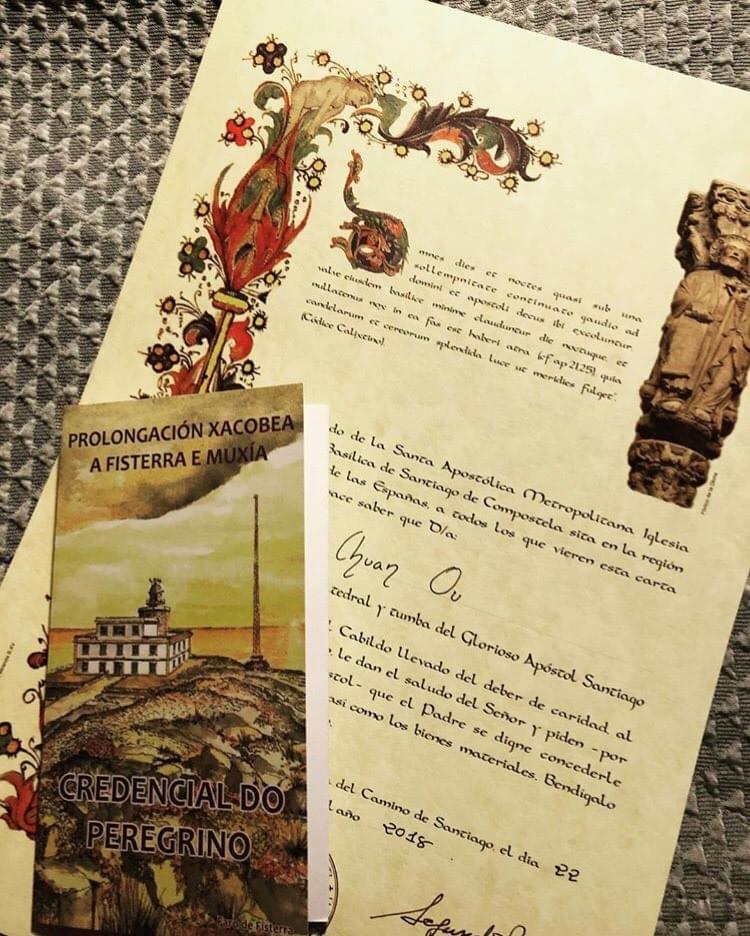 mnes dies et noctes quasi sub una
sollempnitate continuato gaudio ad
domini et apostoli decus ibi excoluntur
valve eiusdem basilice minime clauduntur die noctuque, et
nullatenus nox in ea fas est haberi atra (cf ap 21,25), quia
candelarum et cereorum splendida luce ut meridies fulget".
(Códice Calixtino)
do de la Santa Apostólica Metropolitana Iglesia
Basílica de Santiago de Compostela sita en la región
de las Españas, a todos los que vieren esta carta
ace saber que D/a:
Chuan Ou
tedral y tumba del Glorioso Apóstol Santiago
l Cabildo llevado del deber de caridad, al
, le dan el saludo del Señor y piden -por
stol- que el Padre se digne concederle
así como los bienes materiales. Bendígalo
del Camino de Santiago, el día 22
l año 2018.
PROLONGACIÓN XACOBEA
A FISTERRA E MUXÍA
CREDENCIAL DO
PEREGRINO
Faro de Fisterra